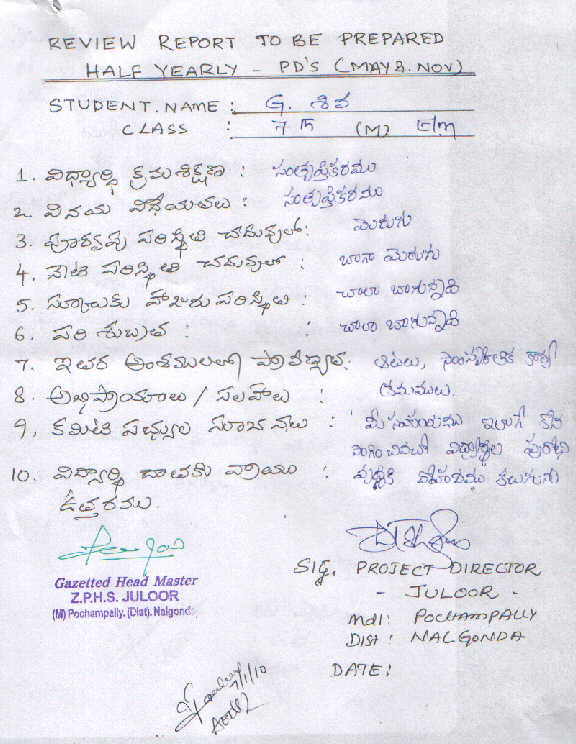 REVIEW REPORT TO BE PREPARED
HALF YEARLY - PD'S (MAY & NOV)
STUDENT.NAME : G. శివ
CLASS : 7th (M) E/m
1. విద్యార్థి క్రమశిక్షణ : సంతృప్తికరము
2. వినయ విధేయతలు : సంతృప్తికరము
3. పూర్వపు పరిస్థితి చదువులో : మెరుగు
4. నేటి పరిస్థితి చదువులో : బాగా మెరుగు
5. స్కూలుకు హాజరు పరిస్థితి : చాలా బాగున్నది
6. పరిశుబ్రత : : చాలా బాగున్నది
7. ఇతర అంశములలో ప్రావీణ్యత : ఆటలు, సాంస్కృతిక కార్య
8. అభిప్రాయాలు / సలహాలు : క్రమములు.
9. కమిటి సభ్యుల సూచనలు : మీ సహాయము ఇలాగే కొన
సాగించినచో విద్యార్థుల పురోభి
10. విద్యార్థి దాతకు వ్రాయు : వృద్ధికి దోహదము కలుగును
ఉత్తరము.
Gazetted Head Master
Z.P.H.S. JULOOR
(M) Pochampally, (Dist). Nalgonda
SIG. PROJECT DIRECTOR
- JULOOR -
Mdl: POCHAMPALLY
DIST: NALGONDA
DATE: